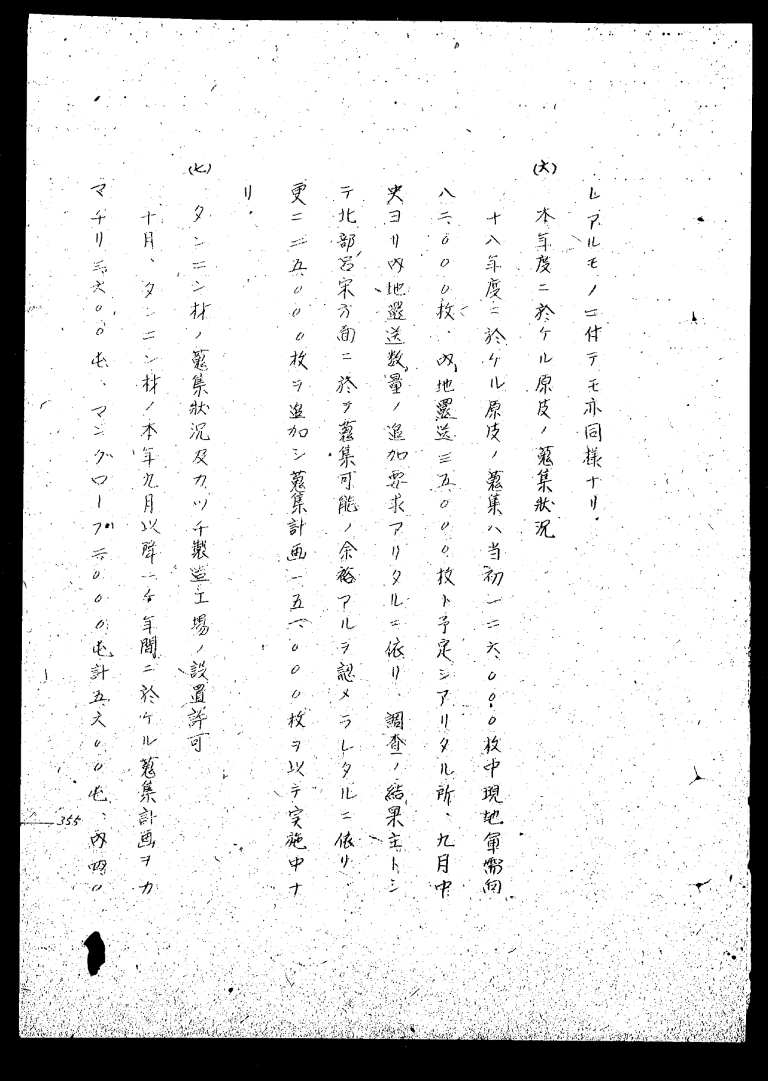 レアルモノニ付テモ亦同様ナリ.
(六) 本年度ニ於ケル原皮ノ蒐集狀況
十八年度ニ於ケル原皮ノ蒐集ハ当初一二六、000枚中現地軍需向
八二、000枚、內地還送三五、000枚ト予定シアリタル所、九月中
央ヨリ內地還送数量ノ追加要求アリタルニ依リ、調査ノ結果主トシ
テ北部呂宋方面ニ於テ蒐集可能ノ余裕アルヲ認メラレタルニ依リ、
更ニ二五、000枚ヲ追加シ蒐集計画一五一、000枚ヲ以テ実施中ナ
リ.
(七) タンニン材ノ蒐集狀況及カッチ製造工場ノ設置許可
十月、タンニン材ノ本年九月以降一ケ年間ニ於ケル蒐集計画ヲカ
マチリ三六00屯、マングローブ二000屯計五六00屯、內四0
355